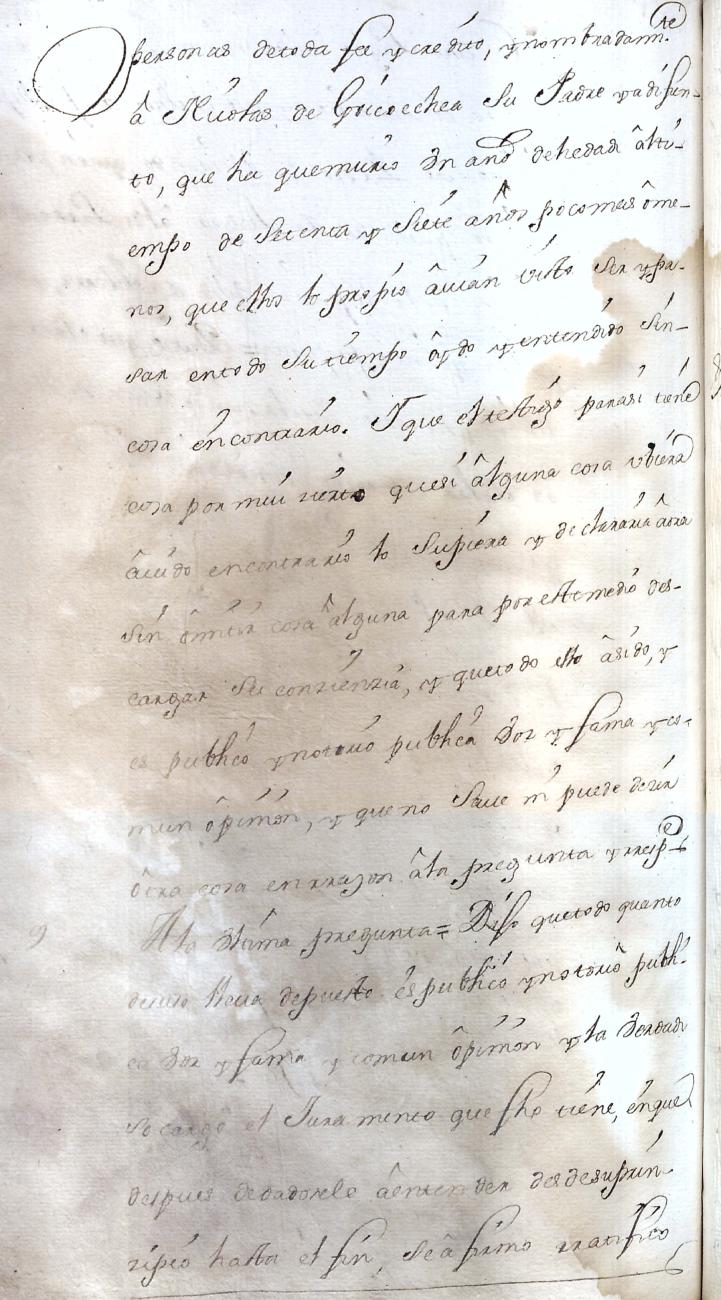 personas de toda fee y credito, y nombradam.te
â Nicolas de Goicoechea su Padre ya difun-
to, que ha que murio Vn año de hedad âl ti-
empo de Setenta y Siete años poco mas ô me-
nos, que ellos lo propio âuian visto ser y pa-
sar en todo su tiempo ôydo y entendido sin-
cosa en contrario. Y que el testigo para si tiene
cosa por mui zierto que si âlguna cosa vbiera
âuido en contrario lo supiera y declararia âora
sin ômitir cosa âlguna para por este medio des-
cargar su conzienzia, y que todo ello â sido, y
es publico y notorio publica Voz y fama y co-
mun ôpinion, y que no saue ni puede dezir
ôtra cosa en rrazon â la pregunta y rresp.de
9 A la Vltima pregunta = Dijo que todo quanto
deuso lleua depuesto es publico y notorio publi-
ca Voz y fama y comun ôpinion y la Verdad
so cargo el Juramento que fho tiene, en que
despues de dadosele â entender desde su prin-
zipio hasta el fin, se âfirmo rratifico